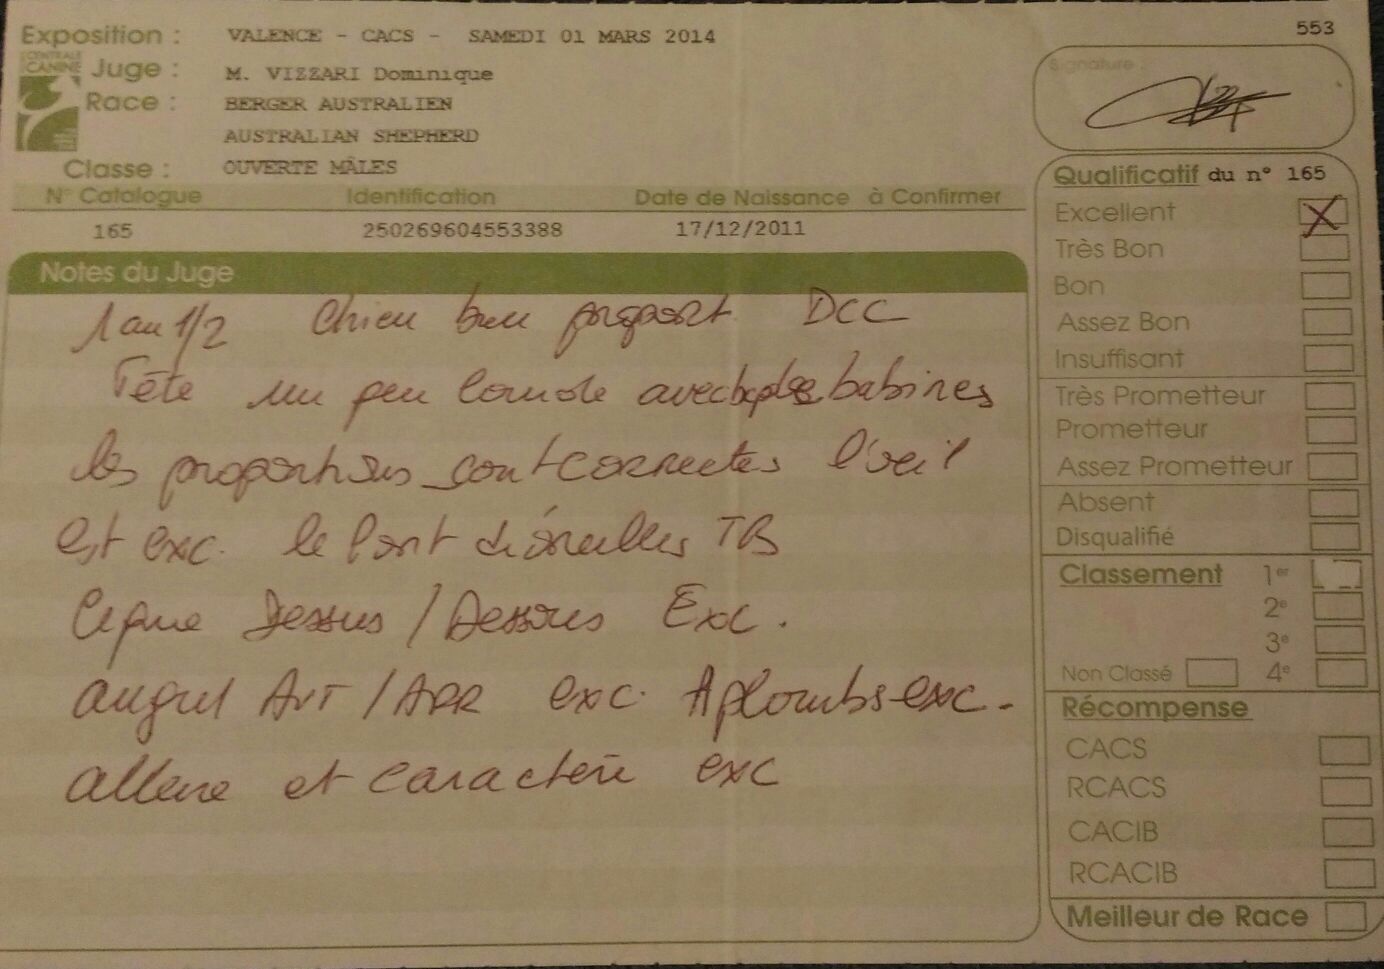 553
Exposition : VALENCE - CACS - SAMEDI 01 MARS 2014
CENTRALE CANINE
Juge : M. VIZZARI Dominique
Race : BERGER AUSTRALIEN
AUSTRALIAN SHEPHERD
Classe : OUVERTE MÂLES
N° Catalogue Identification Date de Naissance à Confirmer
165 250269604553388 17/12/2011
Notes du Juge
1 an 1/2 Chien bien proport. DCC
Tête un peu avec babines
les proportions sont correctes l'œil
est exc. le Port d'oreilles TB
Ligne Dessus / Dessous Exc.
angul AVT / ARR exc. Aplombs exc.
allure et caractère exc
Signature :
Qualificatif du n° 165
Excellent X
Très Bon
Bon
Assez Bon
Insuffisant
Très Prometteur
Prometteur
Assez Prometteur
Absent
Disqualifié
Classement 1er
2e
3e
Non Classé 4e
Récompense
CACS
RCACS
CACIB
RCACIB
Meilleur de Race